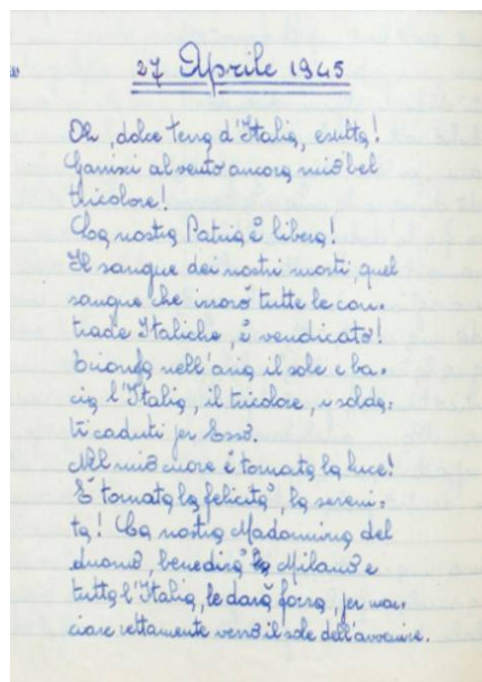 27 Aprile 1945
Oh, dolce terra d'Italia, esulta!
Garrisci al vento ancora mio bel
tricolore!
La nostra Patria è libera!
Il sangue dei nostri morti, quel
sangue che irrorò tutte le con-
trade Italiche, è vendicato!
Trionfa nell'aria il sole e ba-
cia l'Italia, il tricolore, i solda-
ti caduti per Esso.
Nel mio cuore è tornata la luce!
È tornata la felicità, la sereni-
tà! La nostra Madonnina del
duomo, benedirà Milano e
tutta l'Italia, le darà forza, per mar-
ciare rettamente verso il sole dell'avvenire.